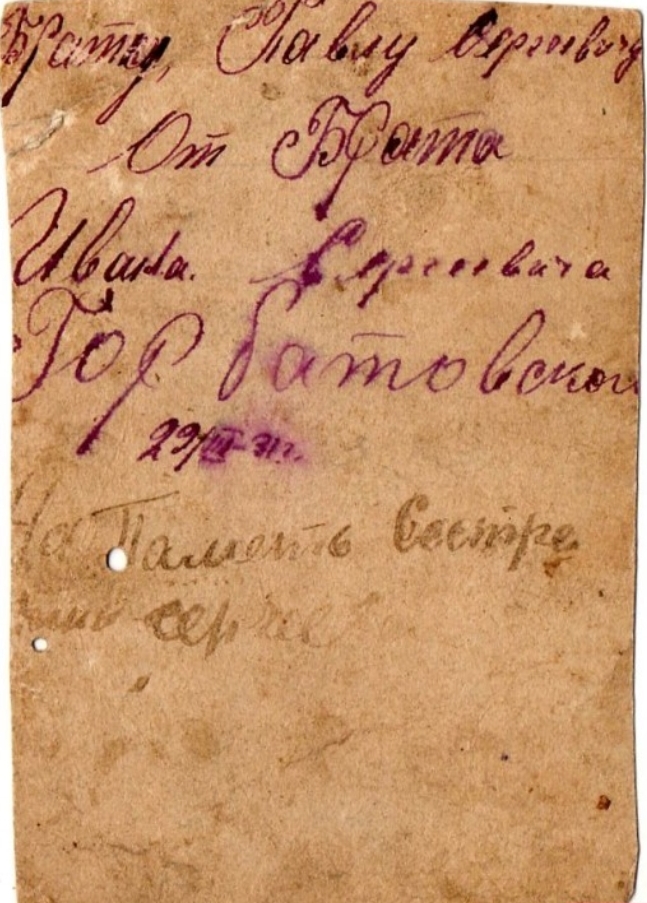 Брату, Павлу Сергеевичу
От Брата
Ивана. Сергеевича
Горбатовской
29/III-31г.
На Память Сестре